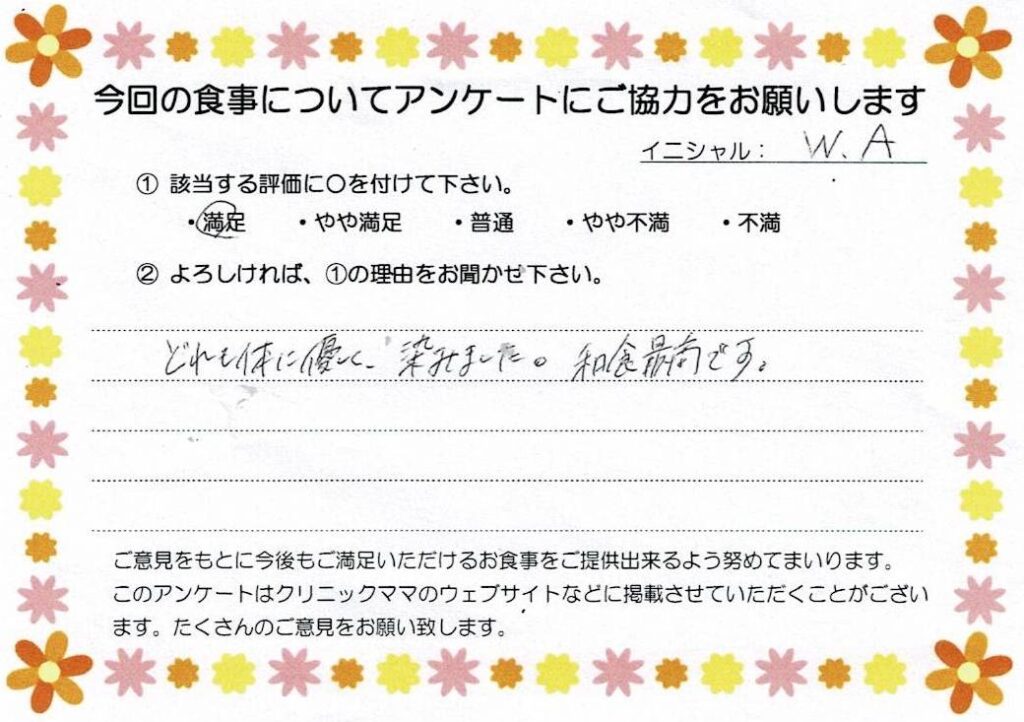 今回の食事についてアンケートにご協力をお願いします
イニシャル： W.A
① 該当する評価に〇を付けて下さい。
・満足 ・やや満足 ・普通 ・やや不満 ・不満
② よろしければ、①の理由をお聞かせ下さい。
どれも体に優しく、染みました。和食最高です。
ご意見をもとに今後もご満足いただけるお食事をご提供出来るよう努めてまいります。
このアンケートはクリニックママのウェブサイトなどに掲載させていただくことがござい
ます。たくさんのご意見をお願い致します。